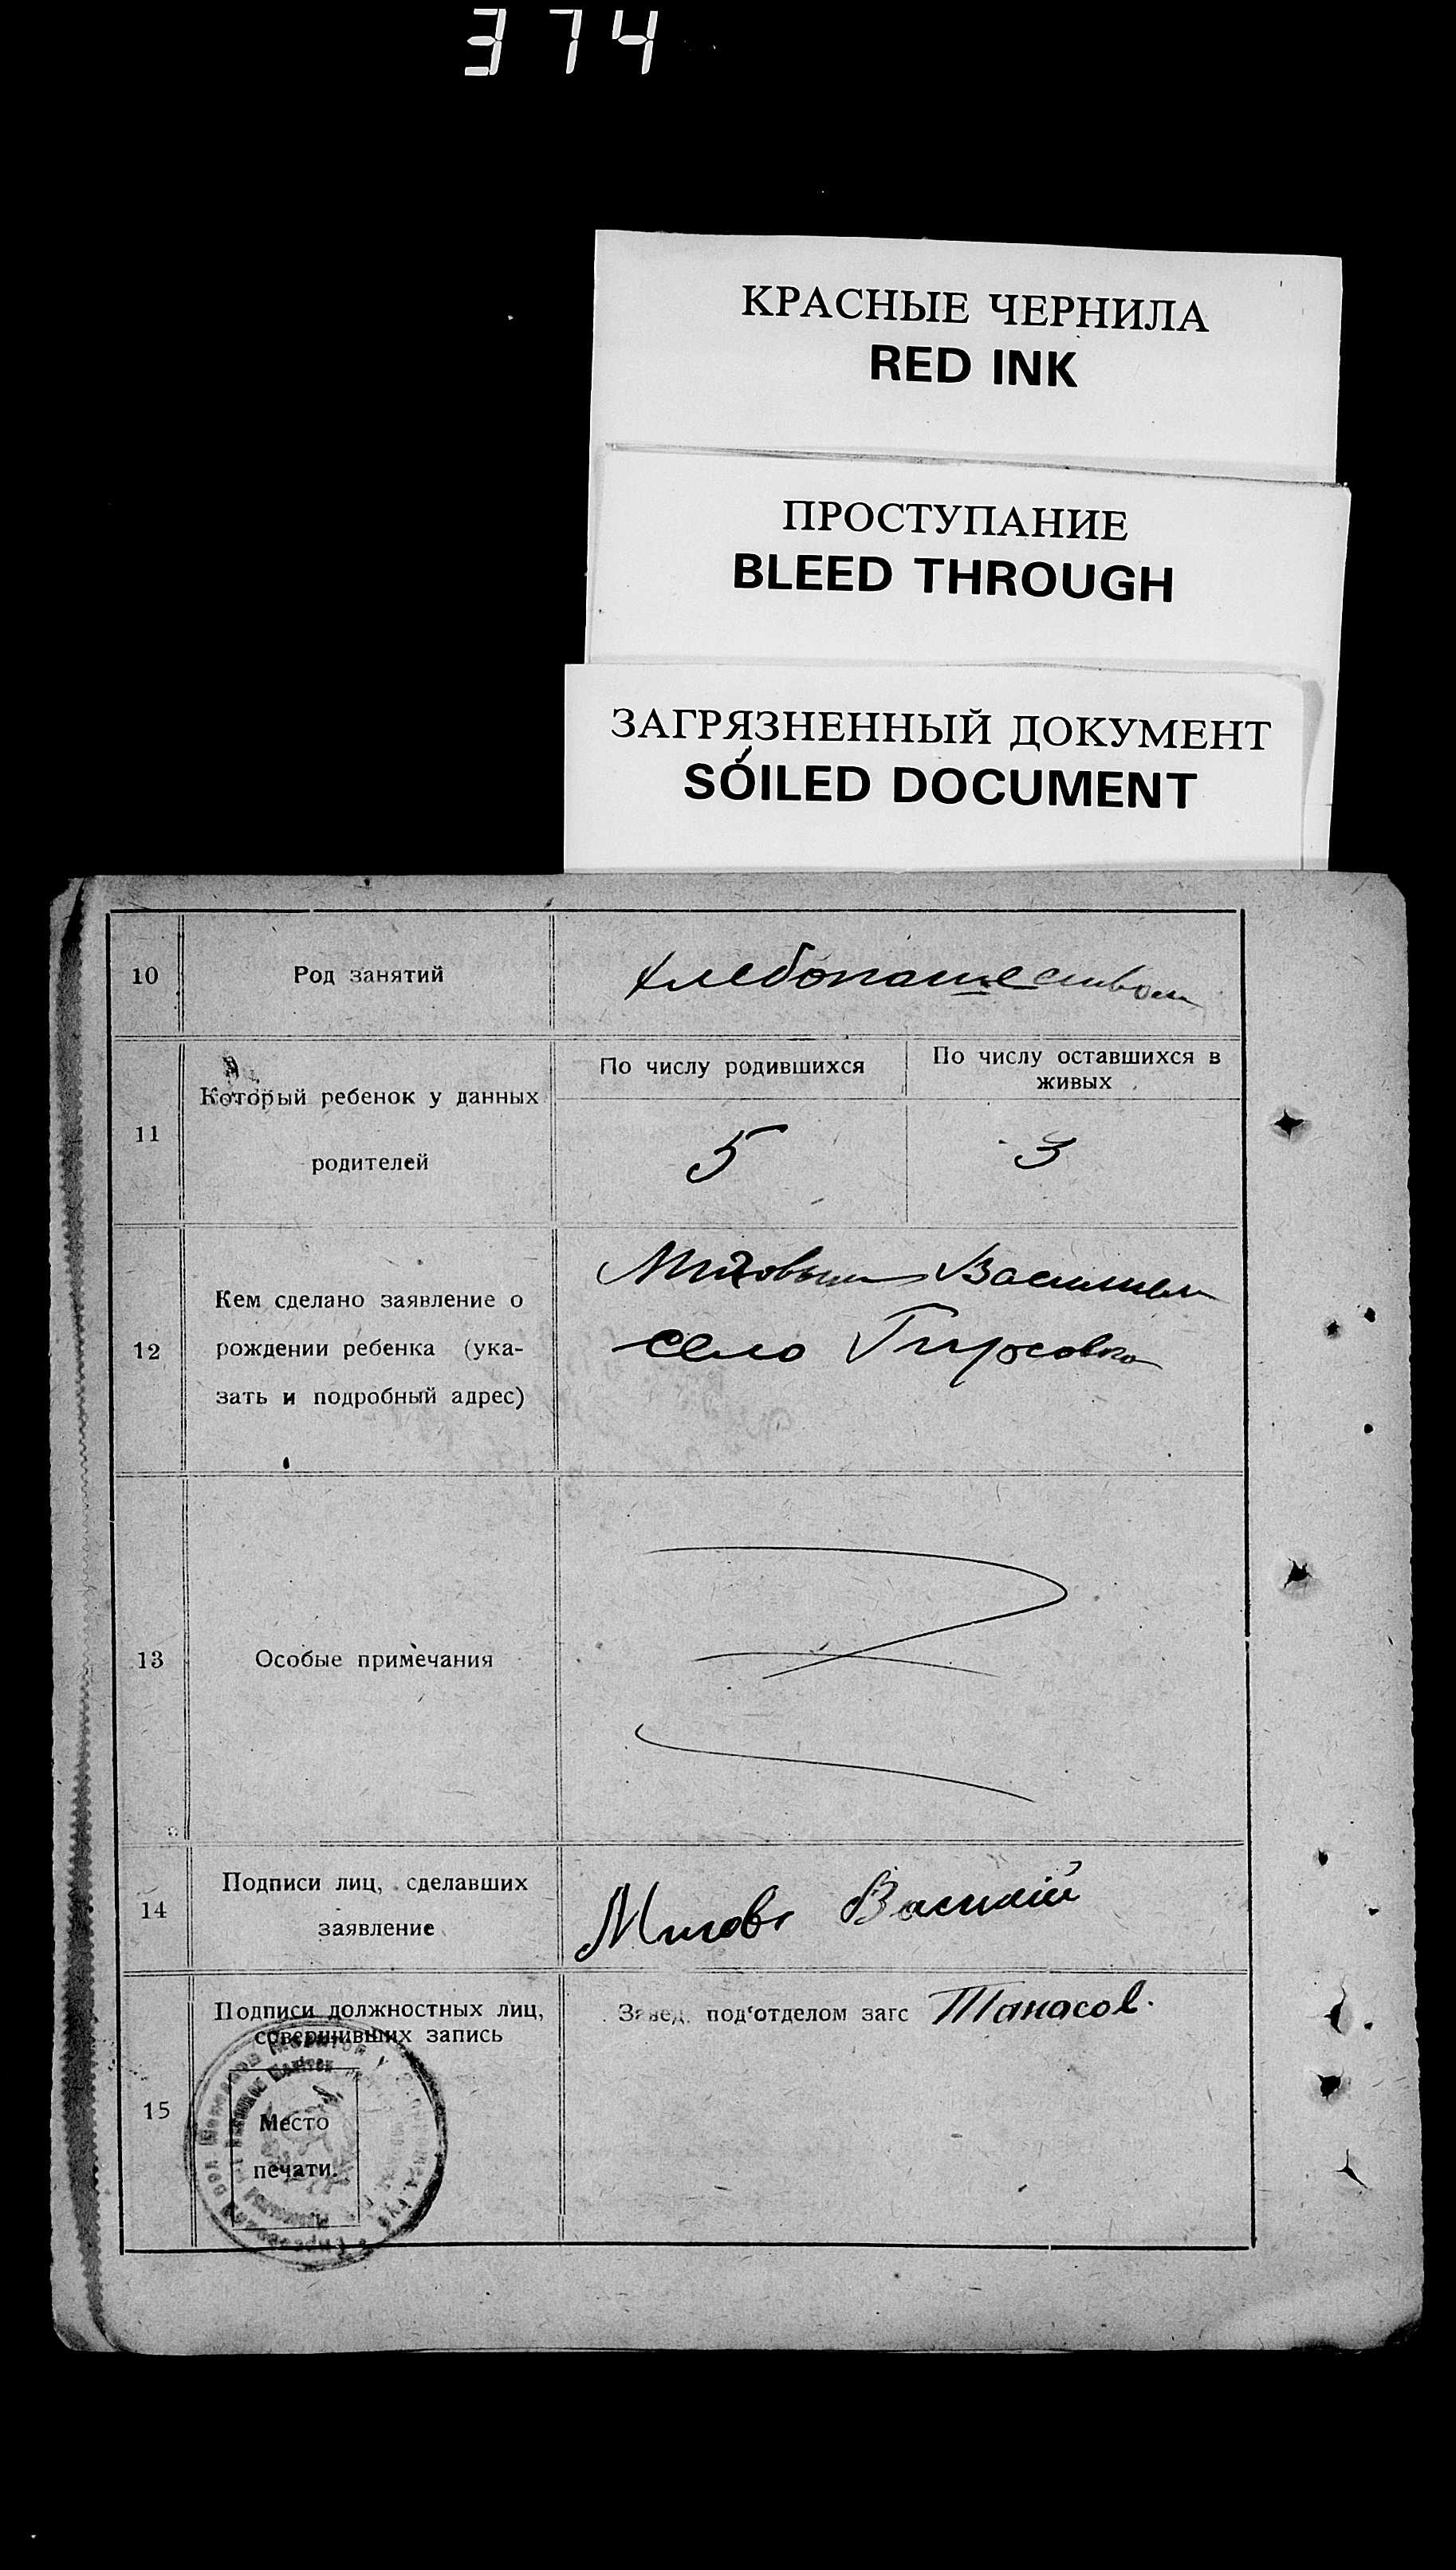 374
КРАСНЫЕ ЧЕРНИЛА
RED INK
ПРОСТУПАНИЕ
BLEED THROUGH
ЗАГРЯЗНЕННЫЙ ДОКУМЕНТ
SOILED DOCUMENT
10 Род занятий хлебопашеством
По числу родившихся По числу оставшихся в
живых
Который ребенок у данных
11 5 3
родителей
Василием
Кем сделано заявление о
село Гирсовка
12 рождении ребенка (ука-
зать и подробный адрес)
13 Особые примечания
Подписи лиц, сделавших
14 Василій
заявление
Подписи должностных лиц, Завед. под'отделом загс Танасов.
совершивших запись
15
Место
печати.